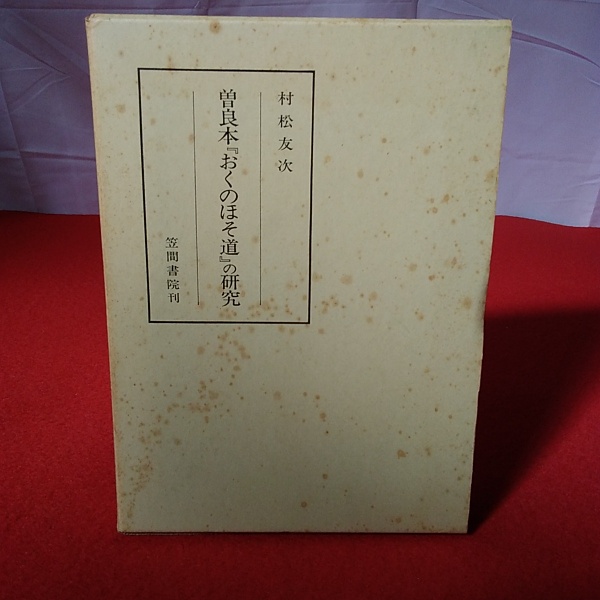 村松友次
曽良本『おくのほそ道』の研究
笠間書院刊